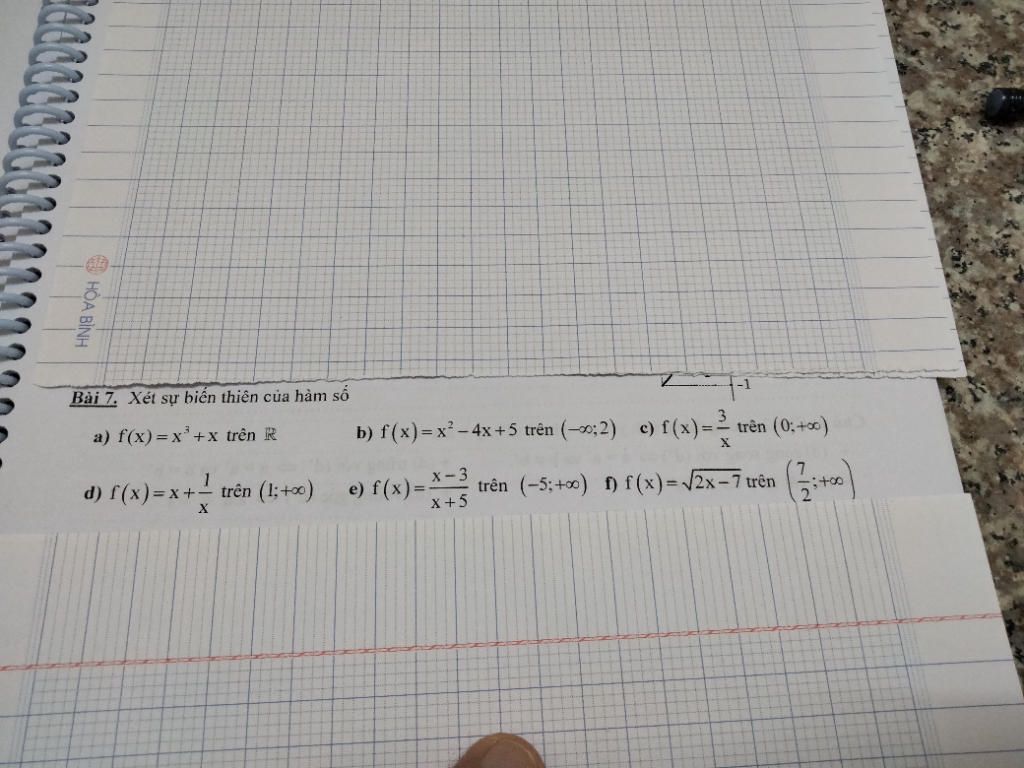 HÒA BÌNH
-1
Bài 7. Xét sự biến thiên của hàm số
a) f(x) = x³ + x trên ℝ b) f(x) = x² − 4x + 5 trên (−∞;2) c) f(x) = 3/x trên (0;+∞)
d) f(x) = x + 1/x trên (1;+∞) e) f(x) = (x−3)/(x+5) trên (−5;+∞) f) f(x) = √(2x−7) trên (7/2;+∞)